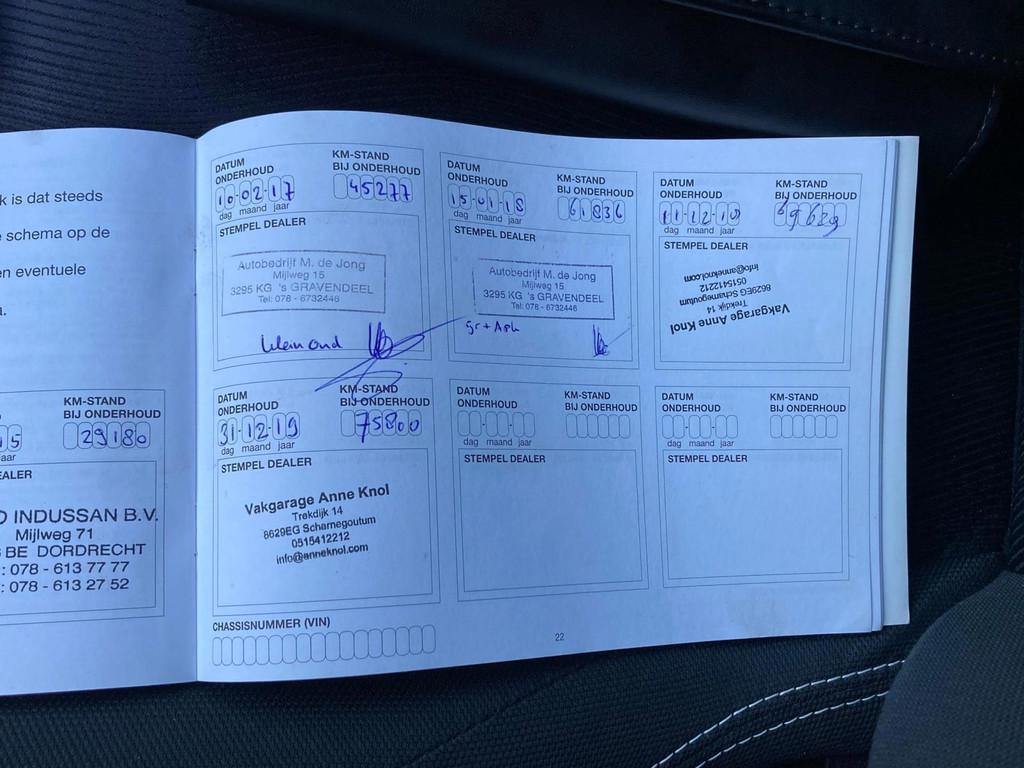 k is dat steeds
schema op de
en eventuele
a.
KM-STAND
BIJ ONDERHOUD
15
29180
aar
EALER
D INDUSSAN B.V.
Mijlweg 71
BE DORDRECHT
: 078 - 613 77 77
: 078 - 613 27 52
DATUM
ONDERHOUD
KM-STAND
BIJ ONDERHOUD
10-02-17
45277
dag maand jaar
STEMPEL DEALER
Autobedrijf M. de Jong
Mijlweg 15
3295 KG 's GRAVENDEEL
Tel: 078 - 6732446
klein ond
DATUM
ONDERHOUD
KM-STAND
BIJ ONDERHOUD
15-01-18
61836
dag maand jaar
STEMPEL DEALER
Autobedrijf M. de Jong
Mijlweg 15
3295 KG 's GRAVENDEEL
Tel: 078 - 6732446
gr + Apk
DATUM
ONDERHOUD
KM-STAND
BIJ ONDERHOUD
11-12-18
69629
dag maand jaar
STEMPEL DEALER
Vakgarage Anne Knol
Trekdijk 14
8629EG Scharnegoutum
0515412212
info@anneknol.com
DATUM
ONDERHOUD
KM-STAND
BIJ ONDERHOUD
31-12-19
75800
dag maand jaar
STEMPEL DEALER
Vakgarage Anne Knol
Trekdijk 14
8629EG Scharnegoutum
0515412212
info@anneknol.com
DATUM
ONDERHOUD
KM-STAND
BIJ ONDERHOUD
dag maand jaar
STEMPEL DEALER
DATUM
ONDERHOUD
KM-STAND
BIJ ONDERHOUD
dag maand jaar
STEMPEL DEALER
CHASSISNUMMER (VIN)
22